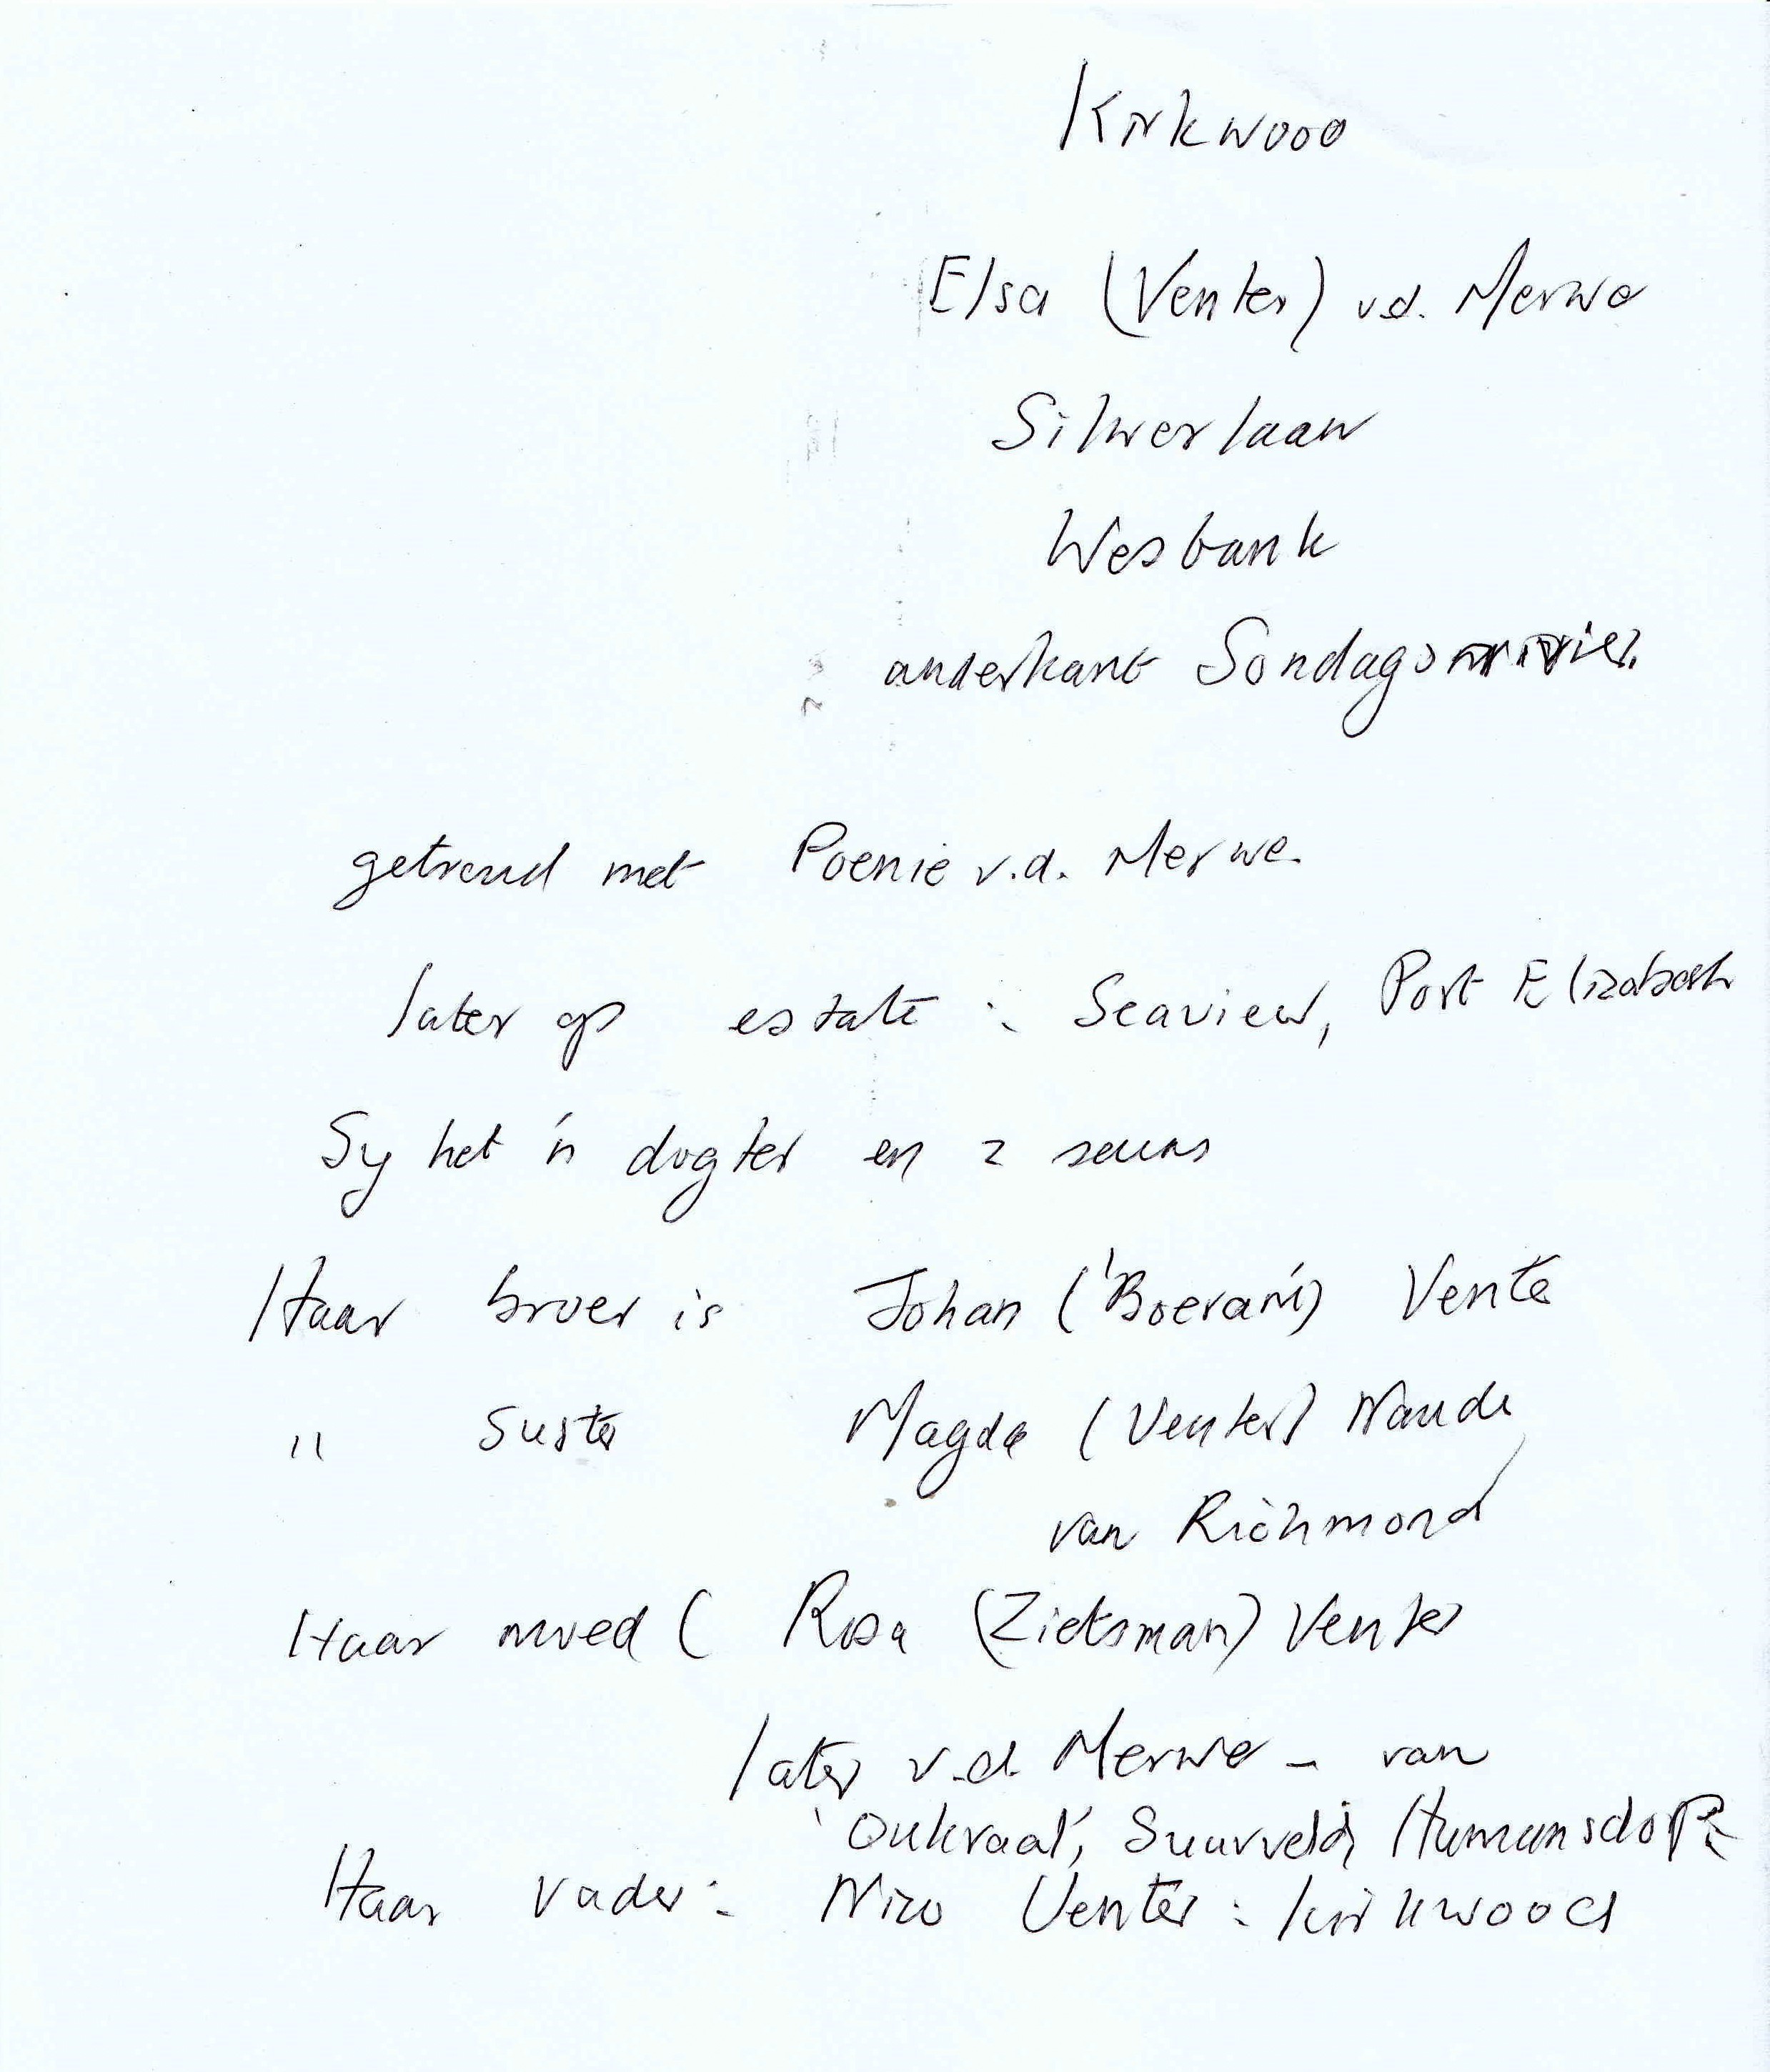 Kirkwood
Elsa (Venter) v.d. Merwe
Silwerlaan
Wesbank
anderkant Sondagsrivier
getroud met Poenie v.d. Merwe
later op estate : Seaview, Port Elizabeth
Sy het 'n dogter en 2 seuns
Haar broer is Johan ('Boeram') Venter
" suster Magda (Venter) Naude
van Richmond
Haar moeder ( Rosa (Zietsman) Venter
later v.d. Merwe - van
'Oukraal', Suurveld, Humansdorp
Haar vader : Nico Venter : Kirkwood